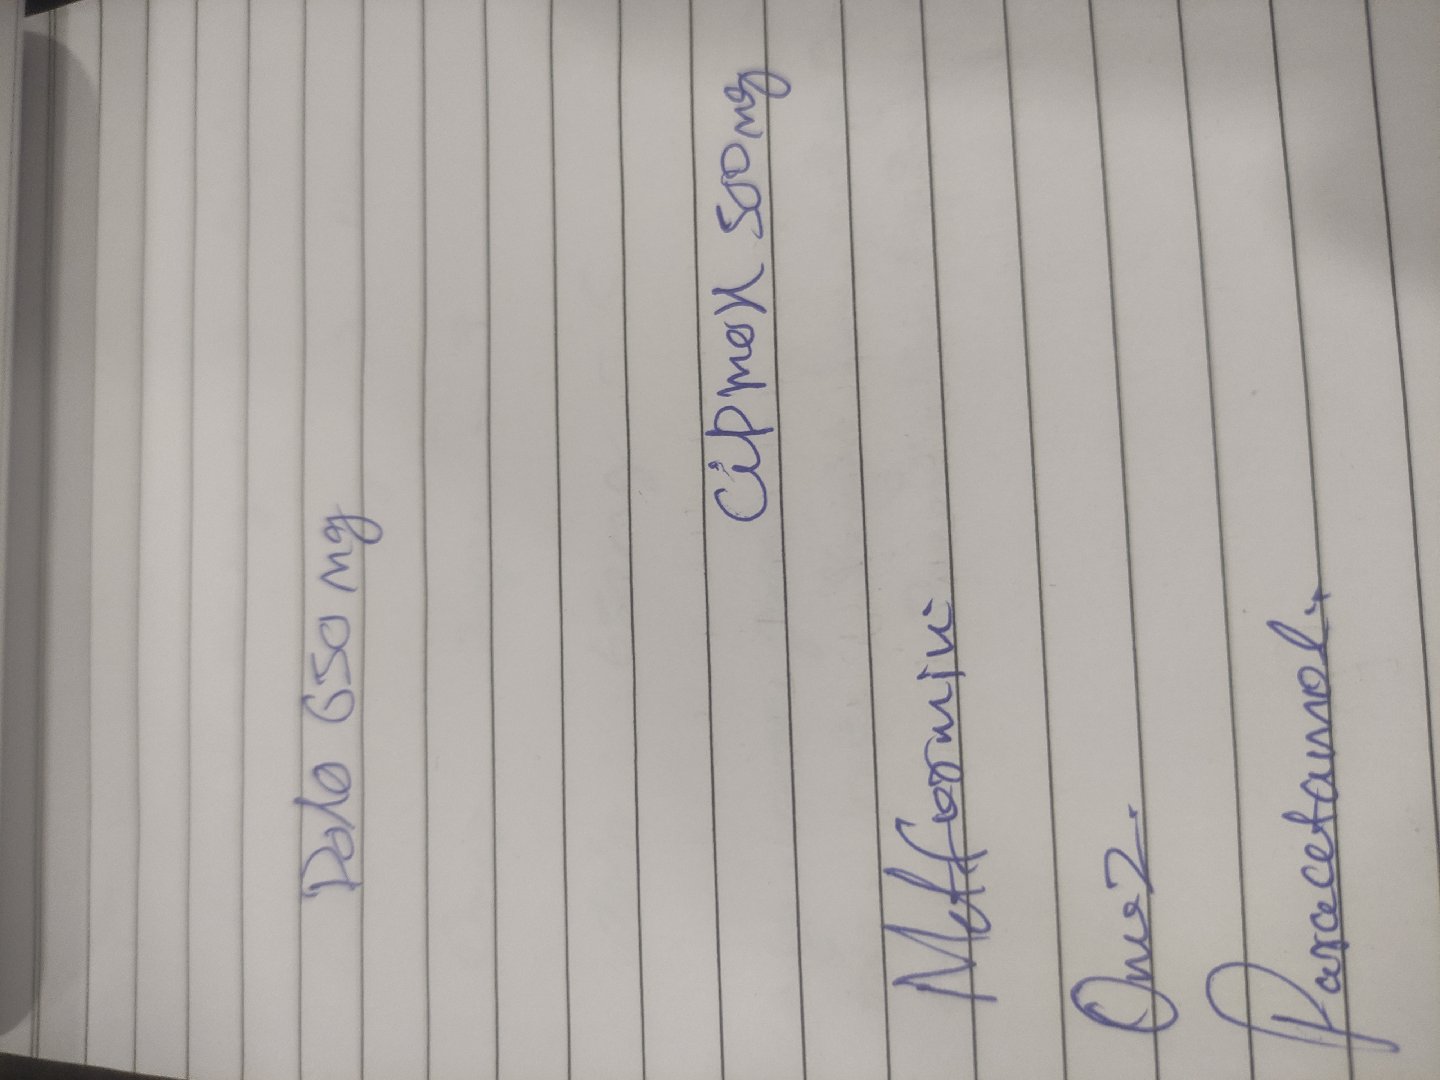 Dolo 650 mg
Cipmox 500 mg
Metformin
Omez.
Paracetamol.